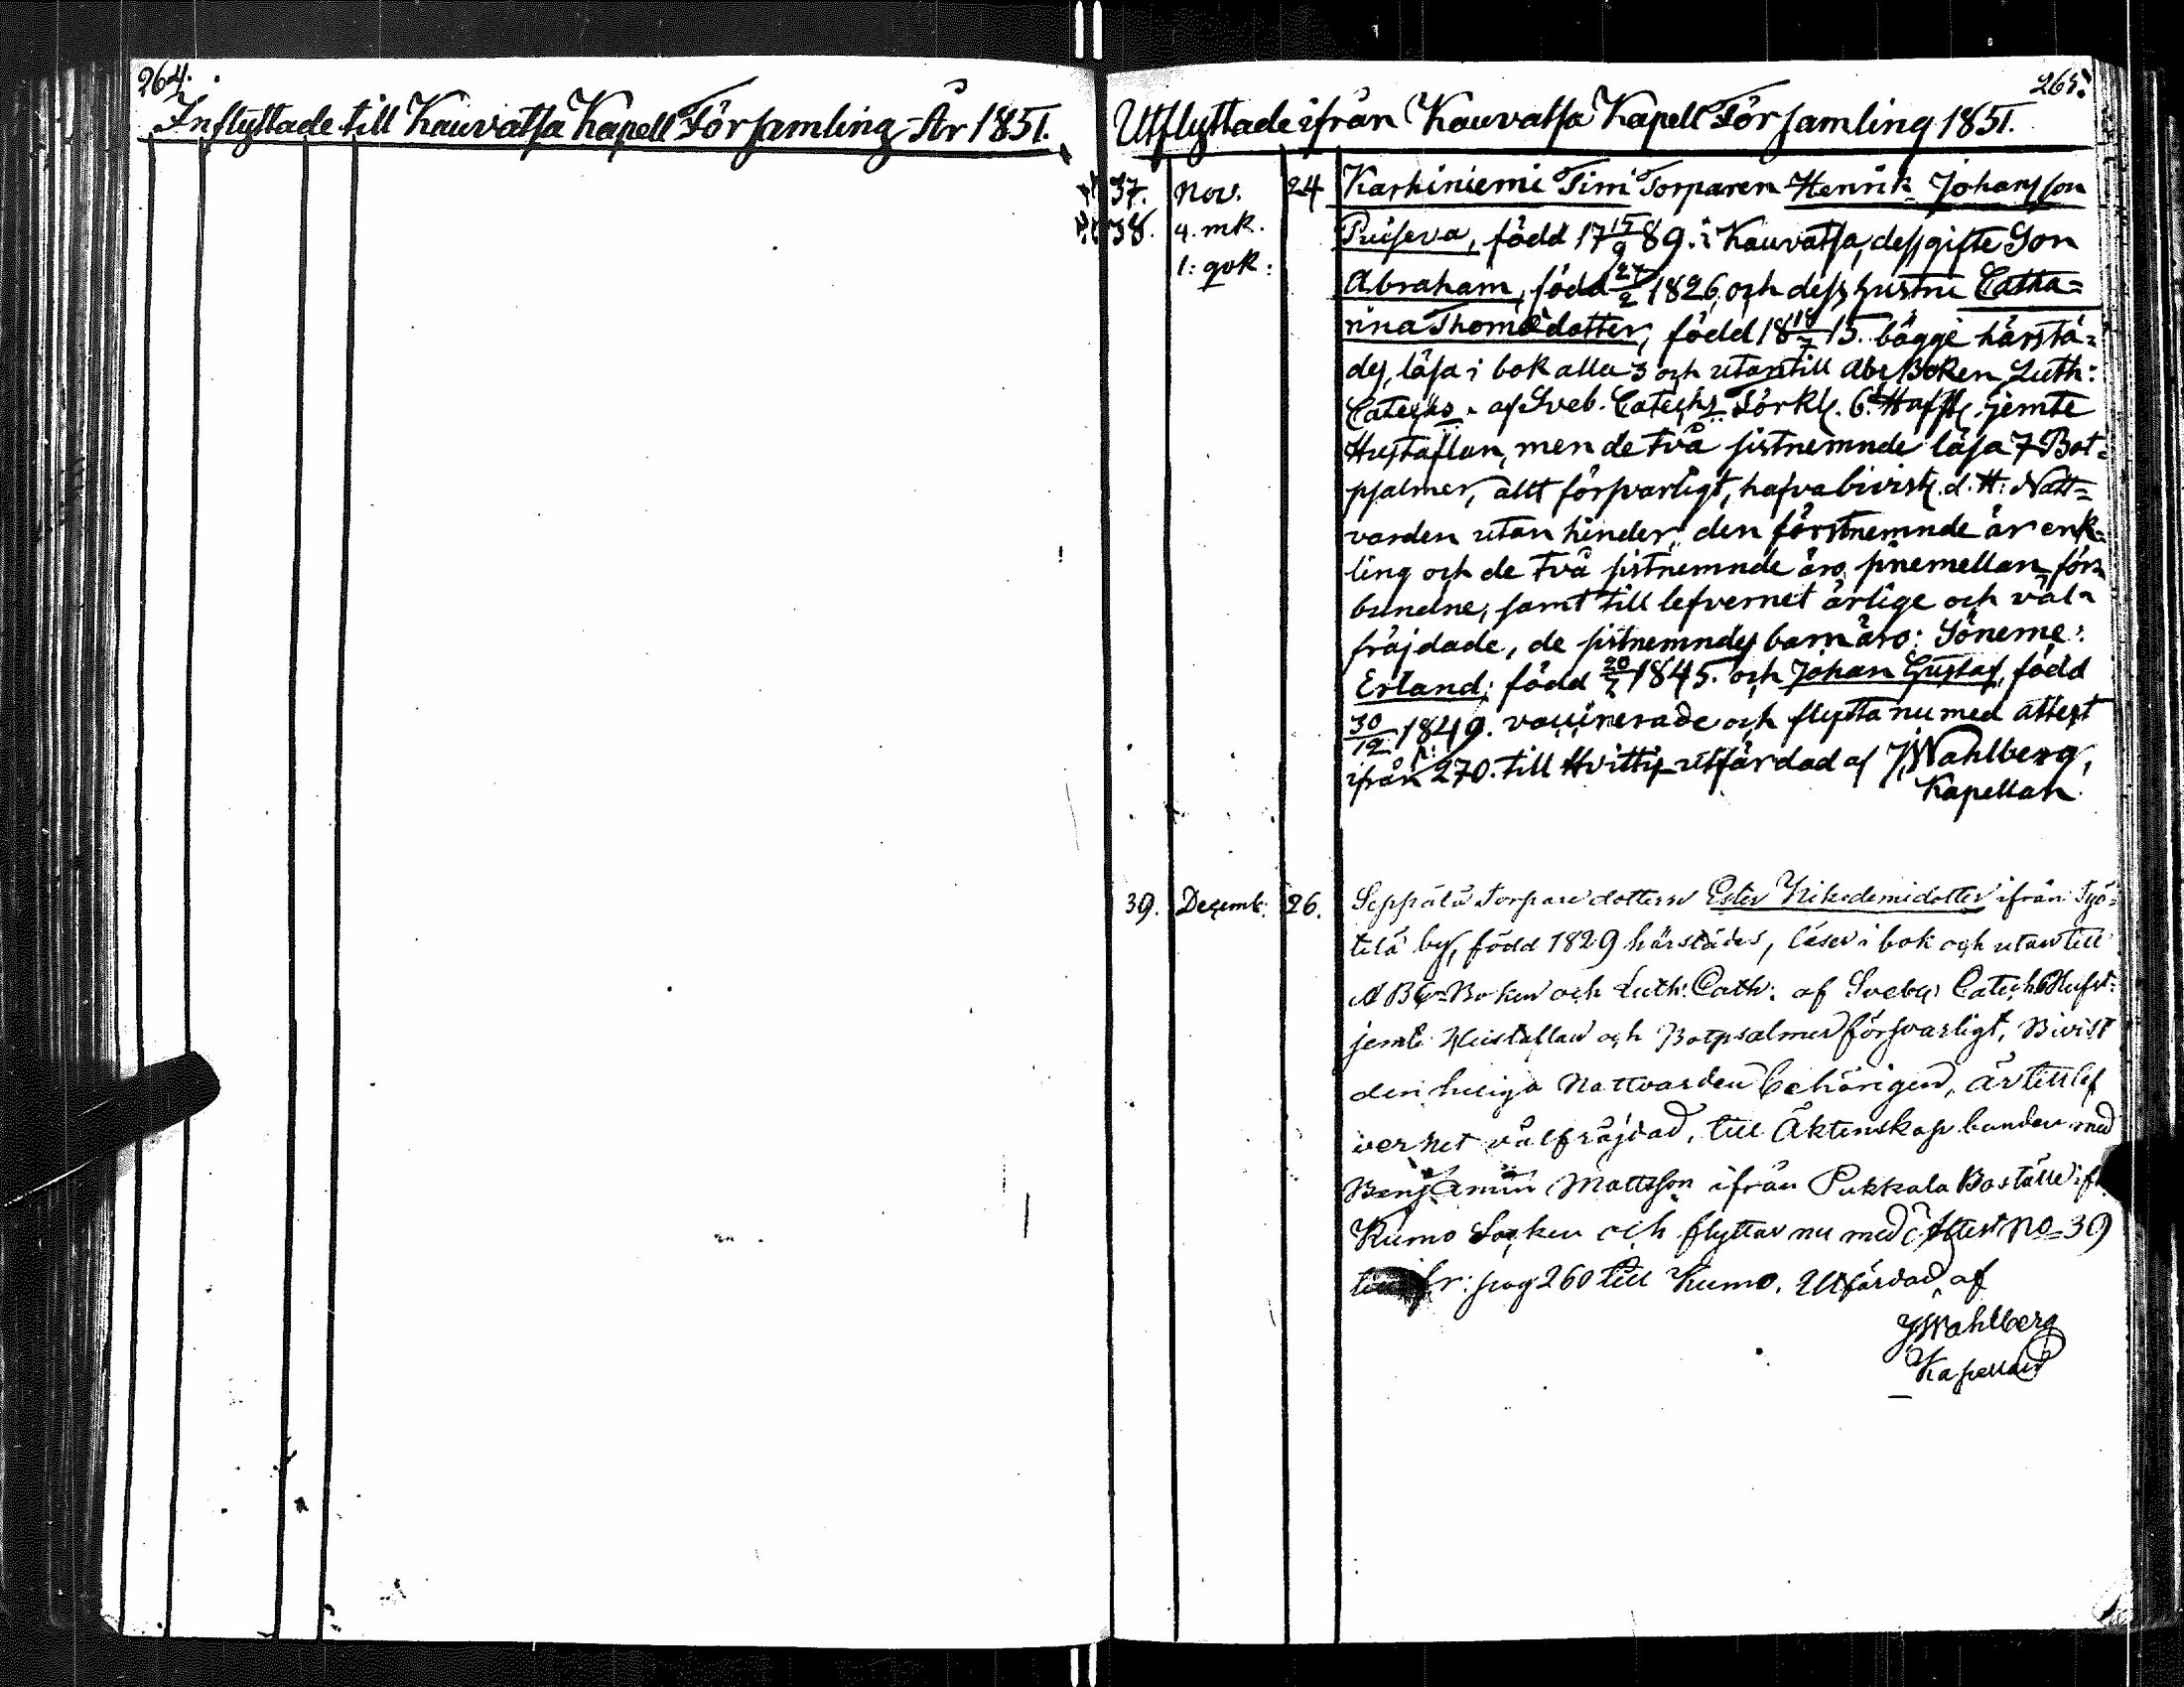 264.
Inflyttade till Kauvatsa Kapell Församling År 1851.
265.
Utflyttade ifrån Kauvatsa Kapell Församling 1851.
37. Nov. 24 Karhiniemi Timi Torparen Henrik Johansson
38. 4. mk. Puiseva, född 17 15/9 89. i Kauvatsa, dess gifte Son
1: qvk: Abraham, född 27/2 1826, och dess hustru Catha=
rina Thomædotter, född 18 /7 15. bägge härstä=
des, läsa i bok alla 3 och utantill Abc Boken Luth:
Cateches. af Sveb. Cateches Förkl. 6. Hufst. jemte
Hustaflan, men de två sistnemnde läsa 7 Bot=
psalmer, allt försvarligt, hafva bivist. d. H. Natt=
varden utan hinder, den förstnemnde är enk=
ling och de två sistnemnde äro sinemellan för=
bundne, samt till lefvernet ärlige och väl=
fräjdade, de sistnemndes barn äro: Sönerne:
Erland, född 20/7 1845. och Johan Gustaf, född
30/12 1849. vaccinerade och flytta nu med attest
ifrån p: 270. till Hvittis utfärdad af J. Wahlberg,
Kapellan
39. Decemb: 26. Seppälä Torpare dottern Ester Nikodemidotter ifrån Työ=
tilä by, född 1829 härstädes, läser i bok och utantill
ABC-Boken och Luth: Cath: af Sveb: Catech 6 Hufst:
jemte Hustaflan och Botpsalmer försvarligt, Bivist
den heliga Nattvarden behörigen, är till lef
vernet välfräjdad, till Äktenskap bunden med
Benjamin Mattsson ifrån Pukkala Boställe ifr
Kumo Socken och flyttar nu med Attest No=39
fr: pag 260 till Kumo. Utfärdad af
J Wahlberg
Kapellan